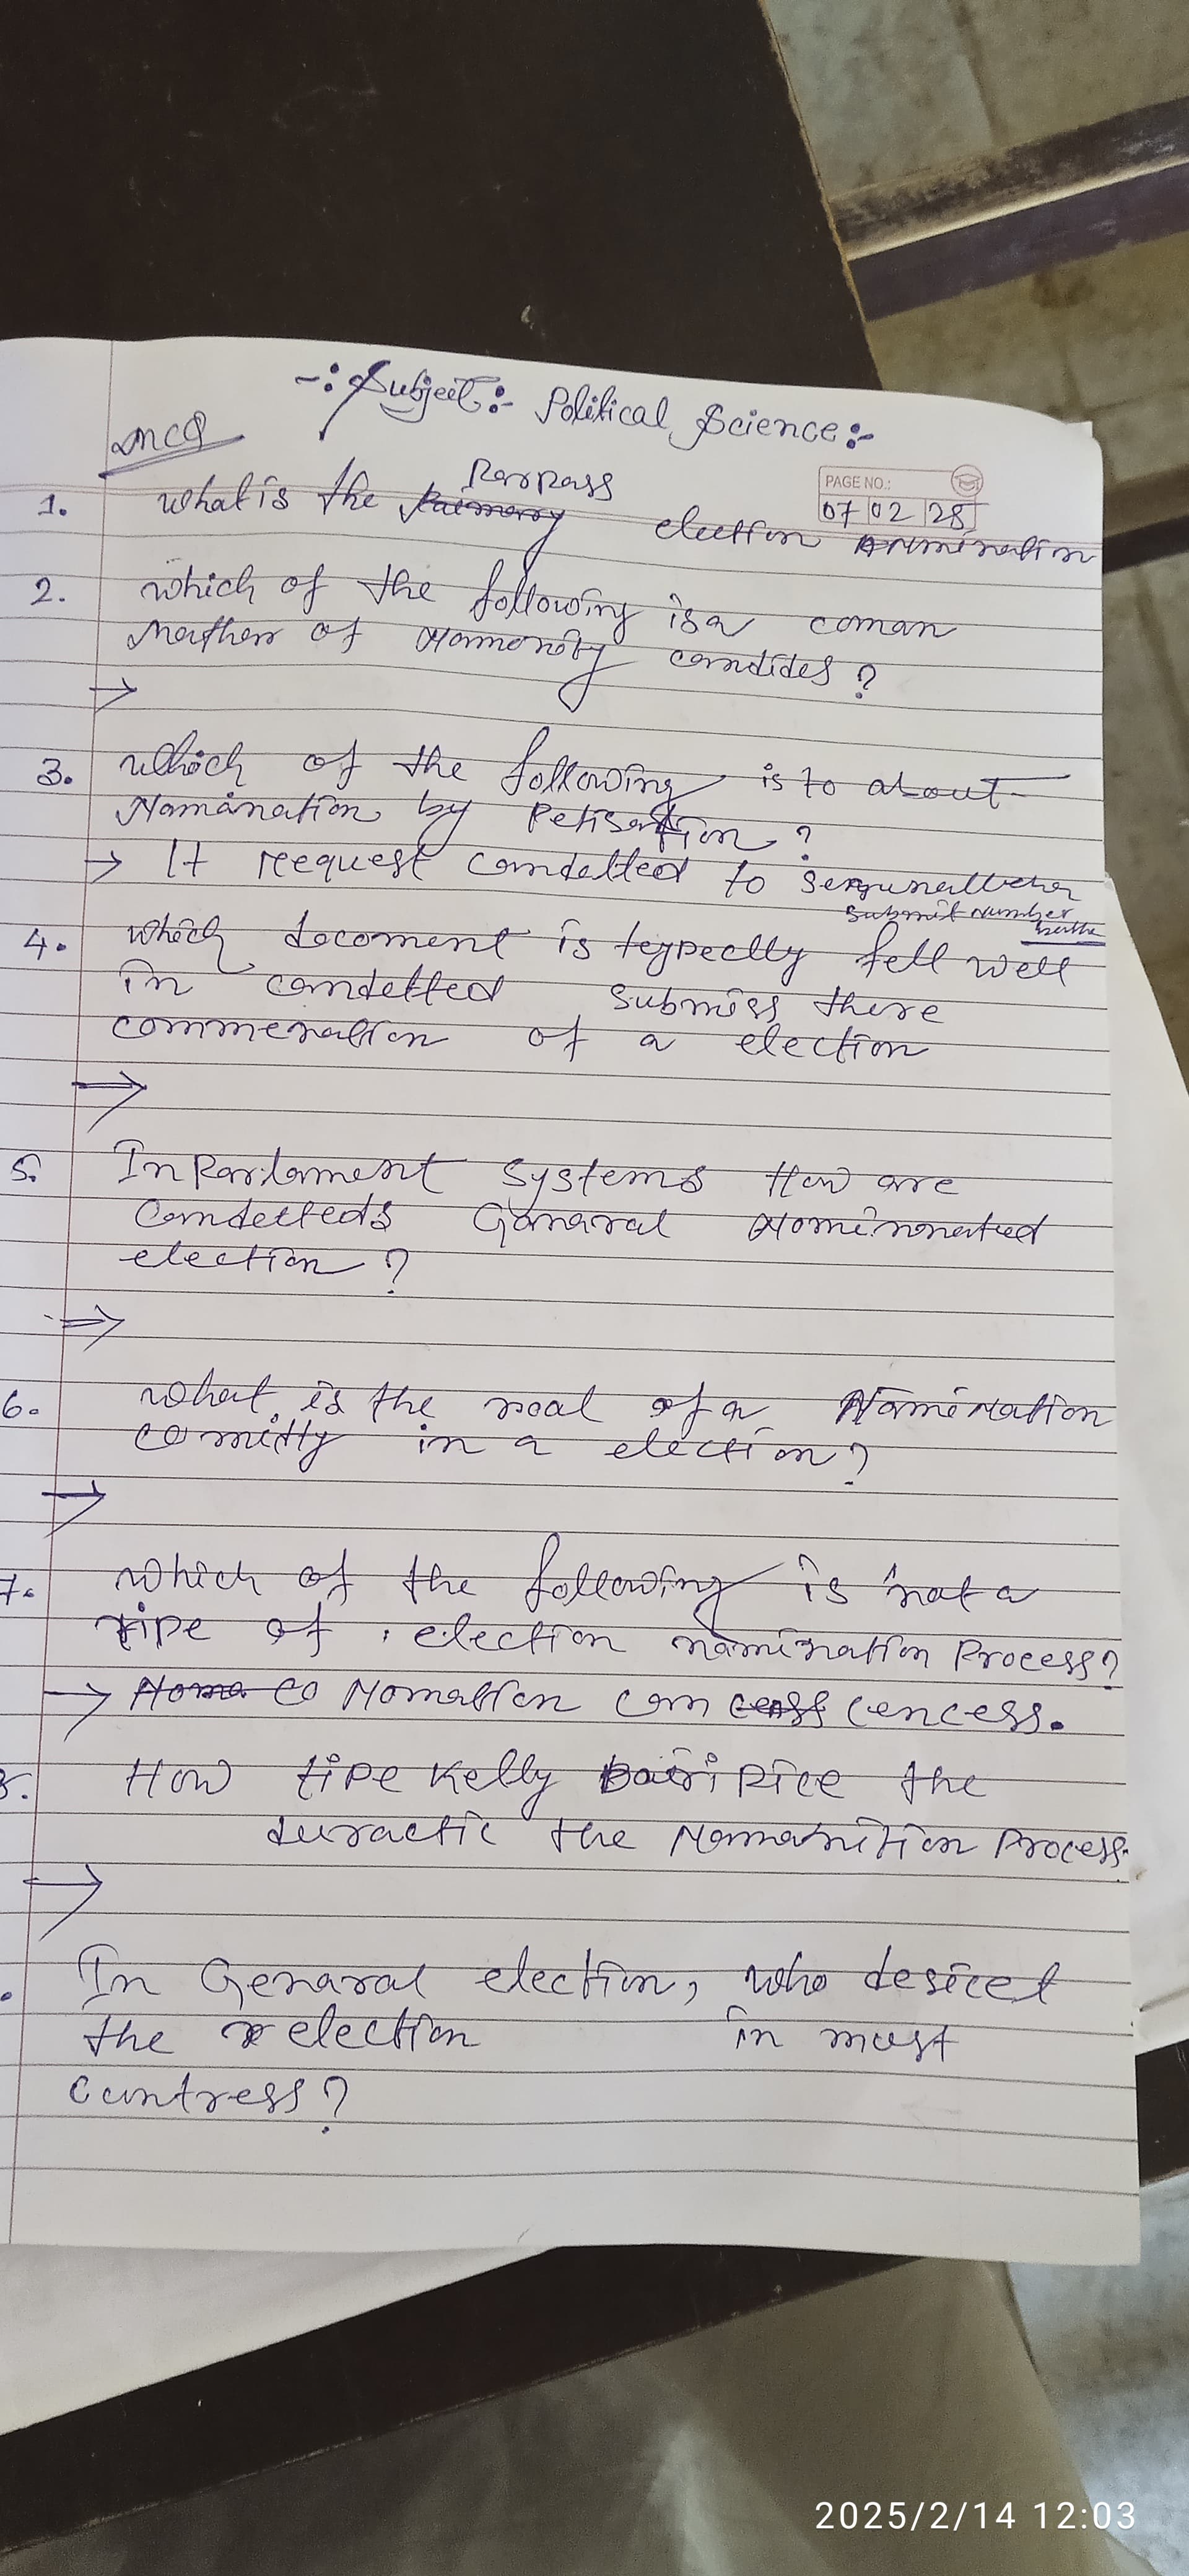 -: Subject :- Political Science :-
MCQ
PAGE NO.:
07 02 25
Parpass
1. what is the election
2. which of the following is a coman
of candides ?
→
3. which of the following is to about
Nomänation by ?
→ It request condetted to
submit number
4. which docoment is typeclly fell well
in condetted submiss there
commenation of a election
⇒
5. In Parlament systems How are
Condetteds Ganaral Nominonated
election ?
⇒
6. what is the roal of a Nomination
comitty in a election ?
⇒
7. which of the following is not a
tipe of election namination Process ?
→ co Nomation con cencess.
How tipe Kelly Pice the
the Process.
→
In Genaral election, who desicet
the election in most
cuntress ?
2025/2/14 12:03